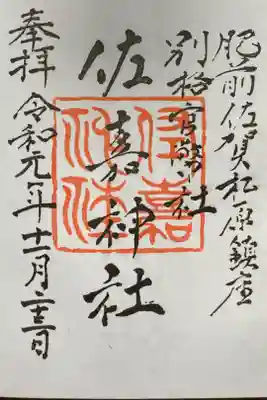 肥前佐賀松原鎮座
別格官幣社
佐嘉神社
奉拝 令和元年十一月二十三日